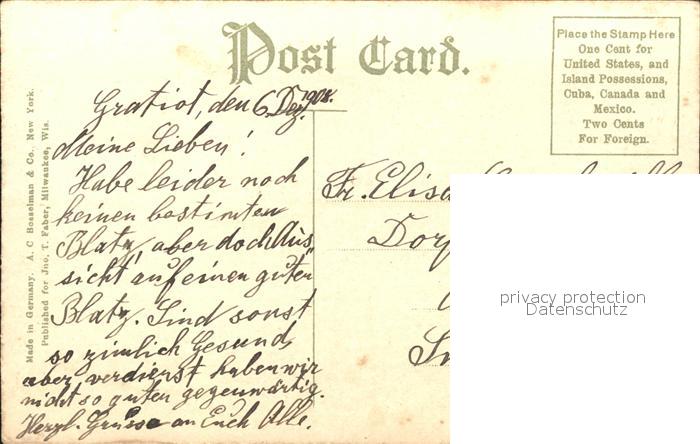 Post Card.
Place the Stamp Here
One Cent for
United States, and
Island Possessions,
Cuba, Canada and
Mexico.
Two Cents
For Foreign.
Made in Germany. A. C Bosselman & Co., New York.
Published for Jno. T. Faber, Milwaukee, Wis.
Gratiot, den 6. Dez. 1908.
Meine Lieben!
Habe leider noch
keinen bestimten
Blatz, aber doch Aus„
sicht auf einen guten
Blatz. Sind sonst
so zimlich Gesund,
aber verdienst haben wir
nicht so guten gegenwärtig.
Herzl. Grüsse an Euch Alle.
Fr. Elisa
Dorf
privacy protection
Datenschutz